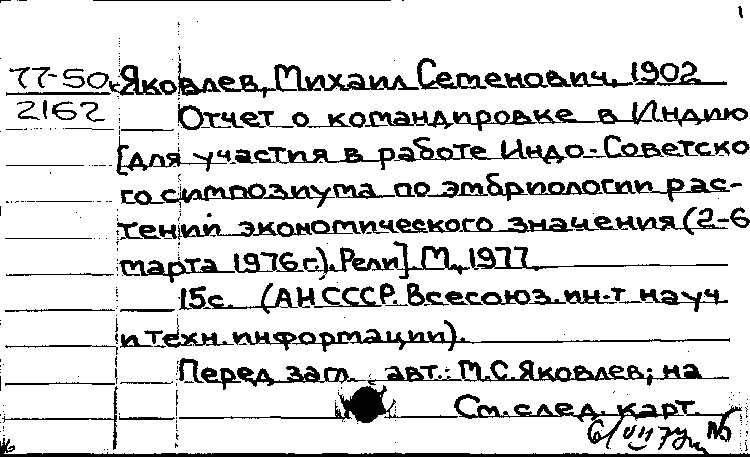 1
77-50 Яковлев, Михаил Семенович, 1902
2162 Отчет о командировке в Индию
[для участия в работе Индо-Советско
го симпозиума по эмбриологии рас-
тений экономического значения (2-6
марта 1976г.). Рели]. М., 1977.
15с. (АН СССР. Всесоюз. ин-т науч
и техн. информации).
Перед загл. авт.: М.С. Яковлев; на
См. след. карт.